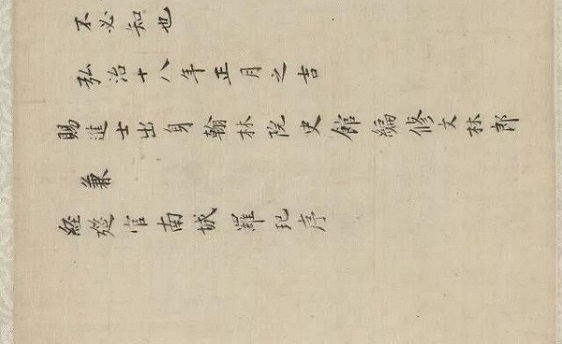 不必知也
弘治十八年正月之吉
賜進士出身翰林院史館編修文林郎
兼
經筵官南城羅玘序